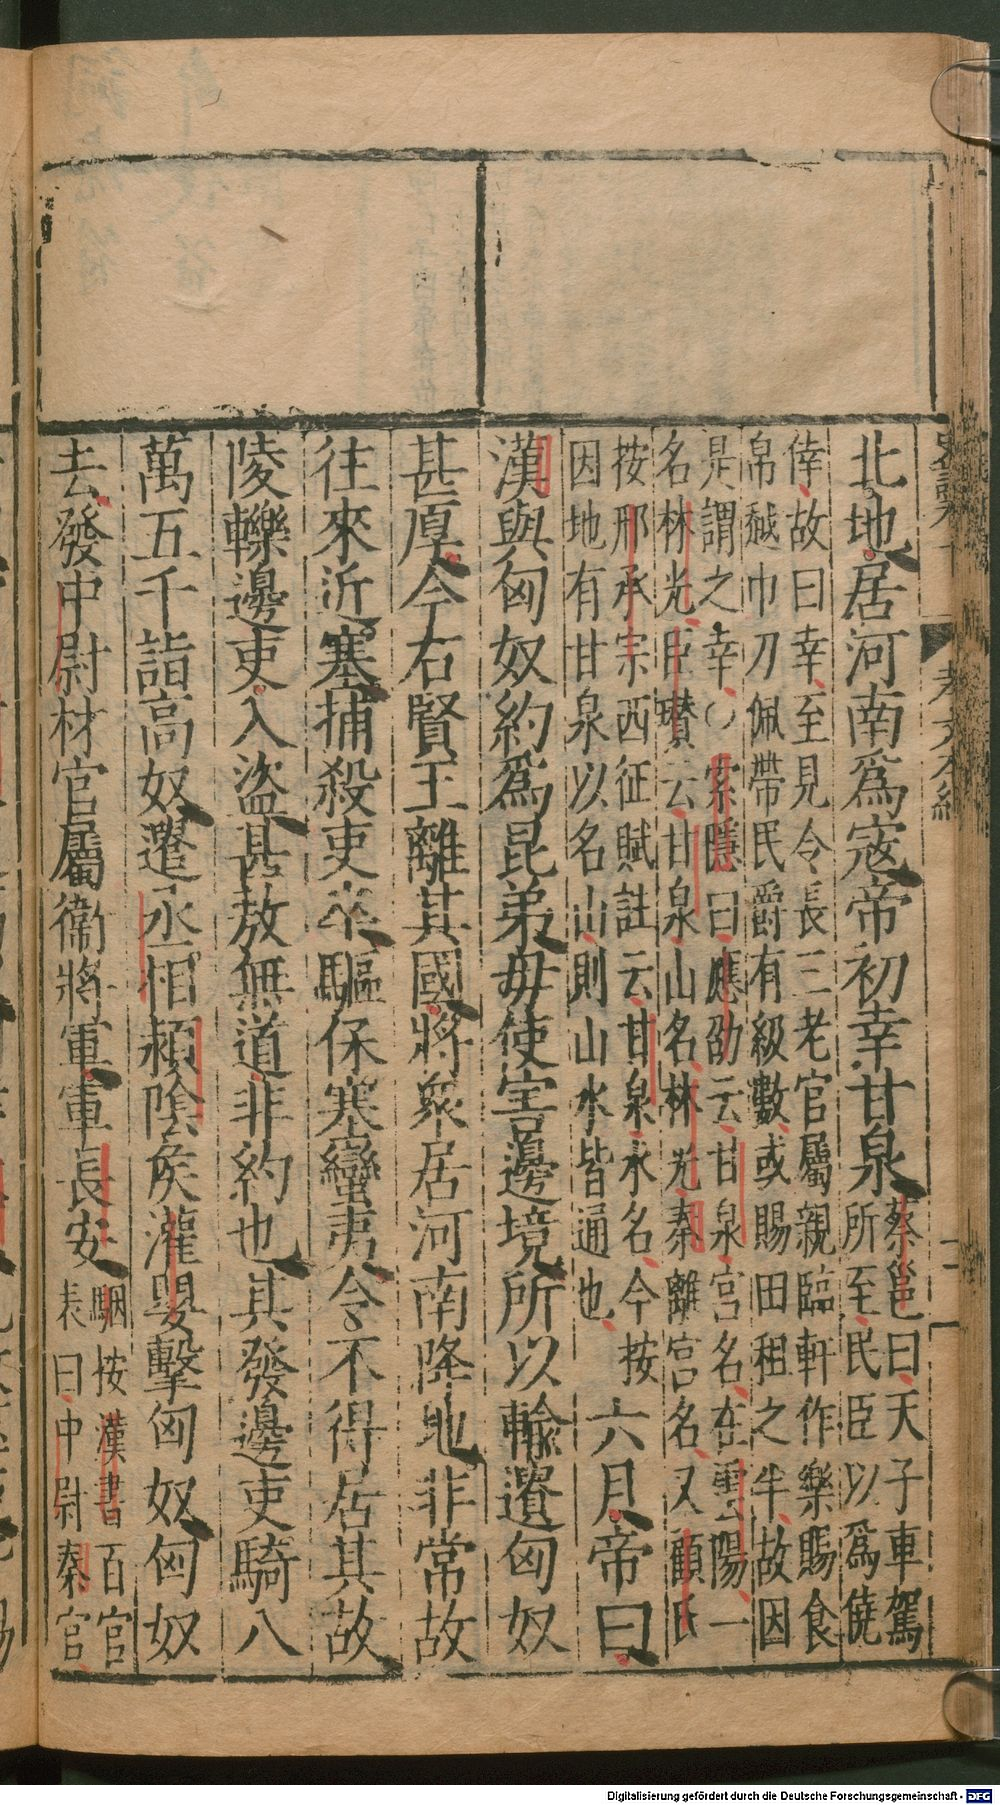 史記卷十　孝文本紀　二
北地居河南爲宼帝初幸甘泉
蔡邕曰天子車駕
所至民臣以爲僥
倖故曰幸至見令長三老官屬親臨軒作樂賜食
帛越巾刀佩帶民爵有級數或賜田租之半故因
是謂之幸○索隱曰應劭云甘泉宮名在雲陽一
名林光臣瓚云甘泉山名林光秦離宮名又顧氏
按邢承宗西征賦註云甘泉水名今按
因地有甘泉以名山則山水皆通也
六月帝曰
漢與匈奴約爲昆弟毋使害邊境所以輸遺匈奴
甚厚今右賢王離其國將衆居河南降地非常故
往來近塞捕殺吏卒驅保塞蠻夷令不得居其故
陵轢邊吏入盗甚敖無道非約也其發邊吏騎八
萬五千詣高奴遣丞相頴陰侯灌嬰擊匈奴匈奴
去發中尉材官屬衞將軍軍長安
駰按漢書百官
表曰中尉秦官
Digitalisierung gefördert durch die Deutsche Forschungsgemeinschaft - DFG